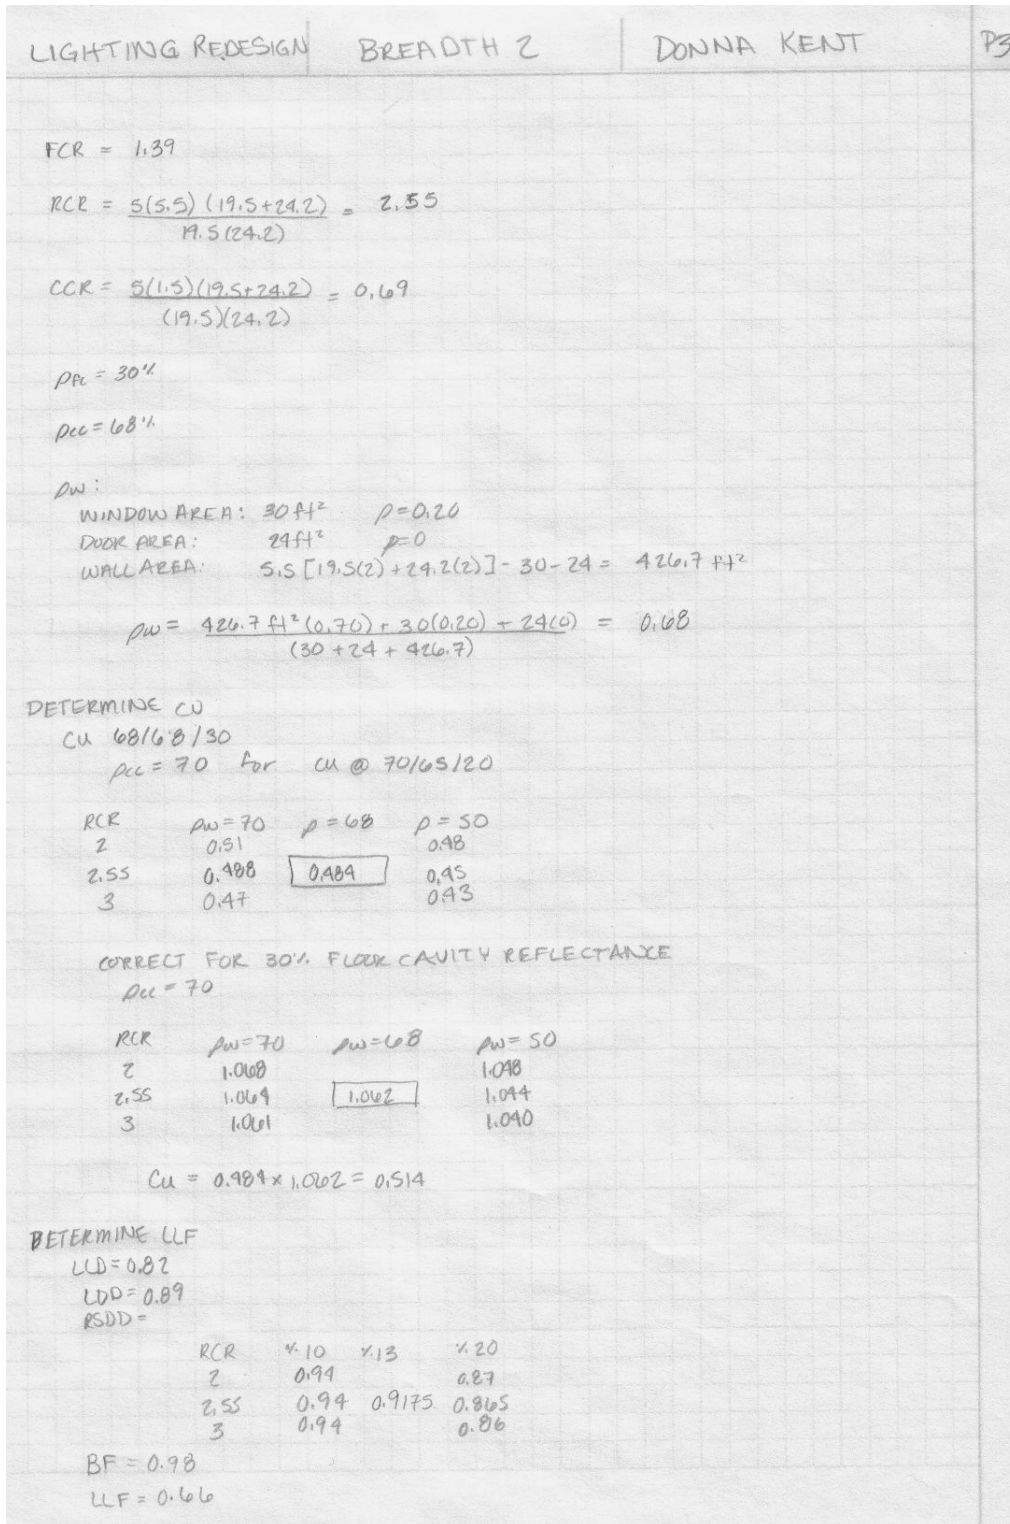 LIGHTING REDESIGN BREADTH 2 DONNA KENT P3
FCR = 1.39
RCR = 5(5.5) (19.5+24.2) = 2.55
19.5(24.2)
CCR = 5(1.5)(19.5+24.2) = 0.69
(19.5)(24.2)
ρfc = 30%
ρcc = 68%
ρw :
WINDOW AREA: 30 ft² ρ=0.20
DOOR AREA: 24ft² ρ=0
WALL AREA: 5.5 [19.5(2) + 24.2(2)] - 30 - 24 = 426.7 ft²
ρw = 426.7 ft² (0.70) + 30(0.20) + 24(0) = 0.68
(30 + 24 + 426.7)
DETERMINE CU
CU 68/68/30
ρcc = 70 for CU @ 70/65/20
RCR ρw=70 ρ=68 ρ=50
2 0.51 0.48
2.55 0.488 0.484 0.45
3 0.47 0.43
CORRECT FOR 30% FLOOR CAVITY REFLECTANCE
ρcc = 70
RCR ρw=70 ρw=68 ρw=50
2 1.068 1.048
2.55 1.064 1.062 1.044
3 1.061 1.040
CU = 0.484 x 1.062 = 0.514
DETERMINE LLF
LLD = 0.82
LDD = 0.89
RSDD =
RCR %10 %13 %20
2 0.94 0.87
2.55 0.94 0.9175 0.865
3 0.94 0.86
BF = 0.98
LLF = 0.66